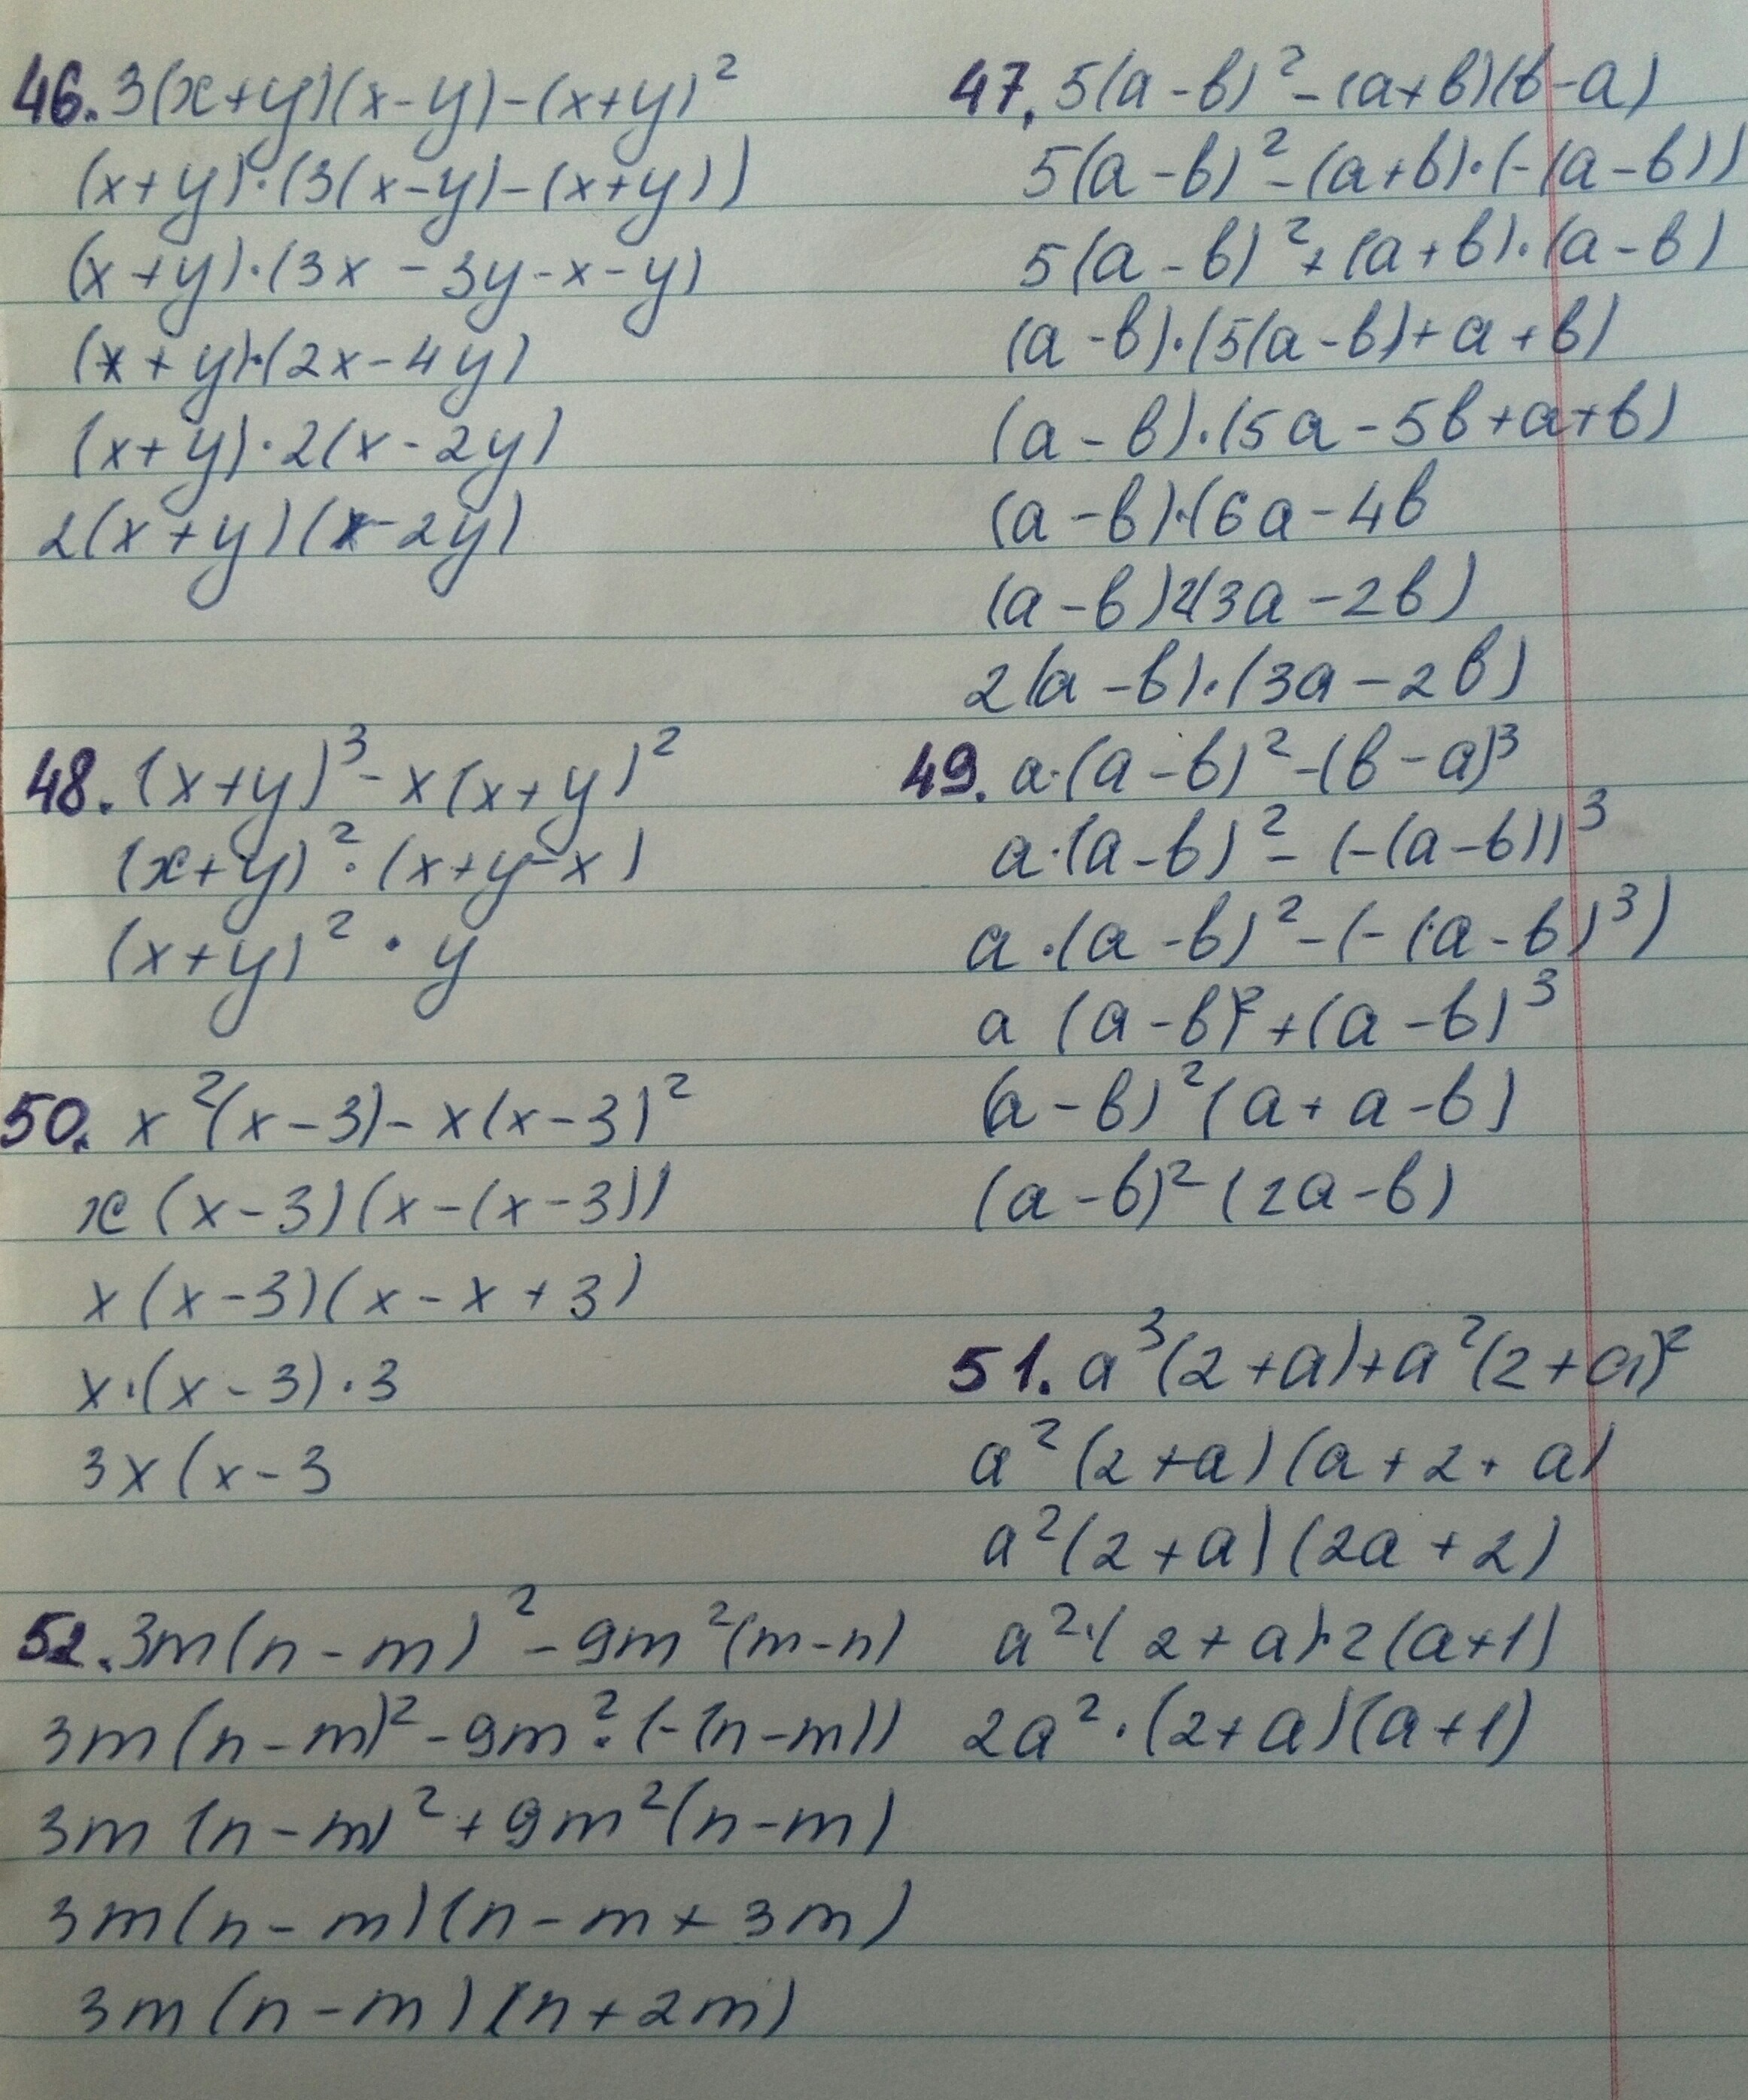 46. 3(x+y)(x-y)-(x+y)²
(x+y)·(3(x-y)-(x+y))
(x+y)·(3x-3y-x-y)
(x+y)·(2x-4y)
(x+y)·2(x-2y)
2(x+y)(x-2y)
47. 5(a-b)²-(a+b)(b-a)
5(a-b)²-(a+b)·(-(a-b))
5(a-b)²+(a+b)·(a-b)
(a-b)·(5(a-b)+a+b)
(a-b)·(5a-5b+a+b)
(a-b)·(6a-4b
(a-b)2(3a-2b)
2(a-b)·(3a-2b)
48. (x+y)³-x(x+y)²
(x+y)²·(x+y-x)
(x+y)²·y
49. a·(a-b)²-(b-a)³
a·(a-b)²-(-(a-b))³
a·(a-b)²-(-(a-b)³)
a(a-b)²+(a-b)³
(a-b)²(a+a-b)
(a-b)²(2a-b)
50. x²(x-3)-x(x-3)²
x(x-3)(x-(x-3))
x(x-3)(x-x+3)
x·(x-3)·3
3x(x-3
51. a³(2+a)+a²(2+a)²
a²(2+a)(a+2+a)
a²(2+a)(2a+2)
a²·(2+a)·2(a+1)
2a²·(2+a)(a+1)
52. 3m(n-m)²-9m²(m-n)
3m(n-m)²-9m²·(-(n-m))
3m(n-m)²+9m²(n-m)
3m(n-m)(n-m+3m)
3m(n-m)(n+2m)